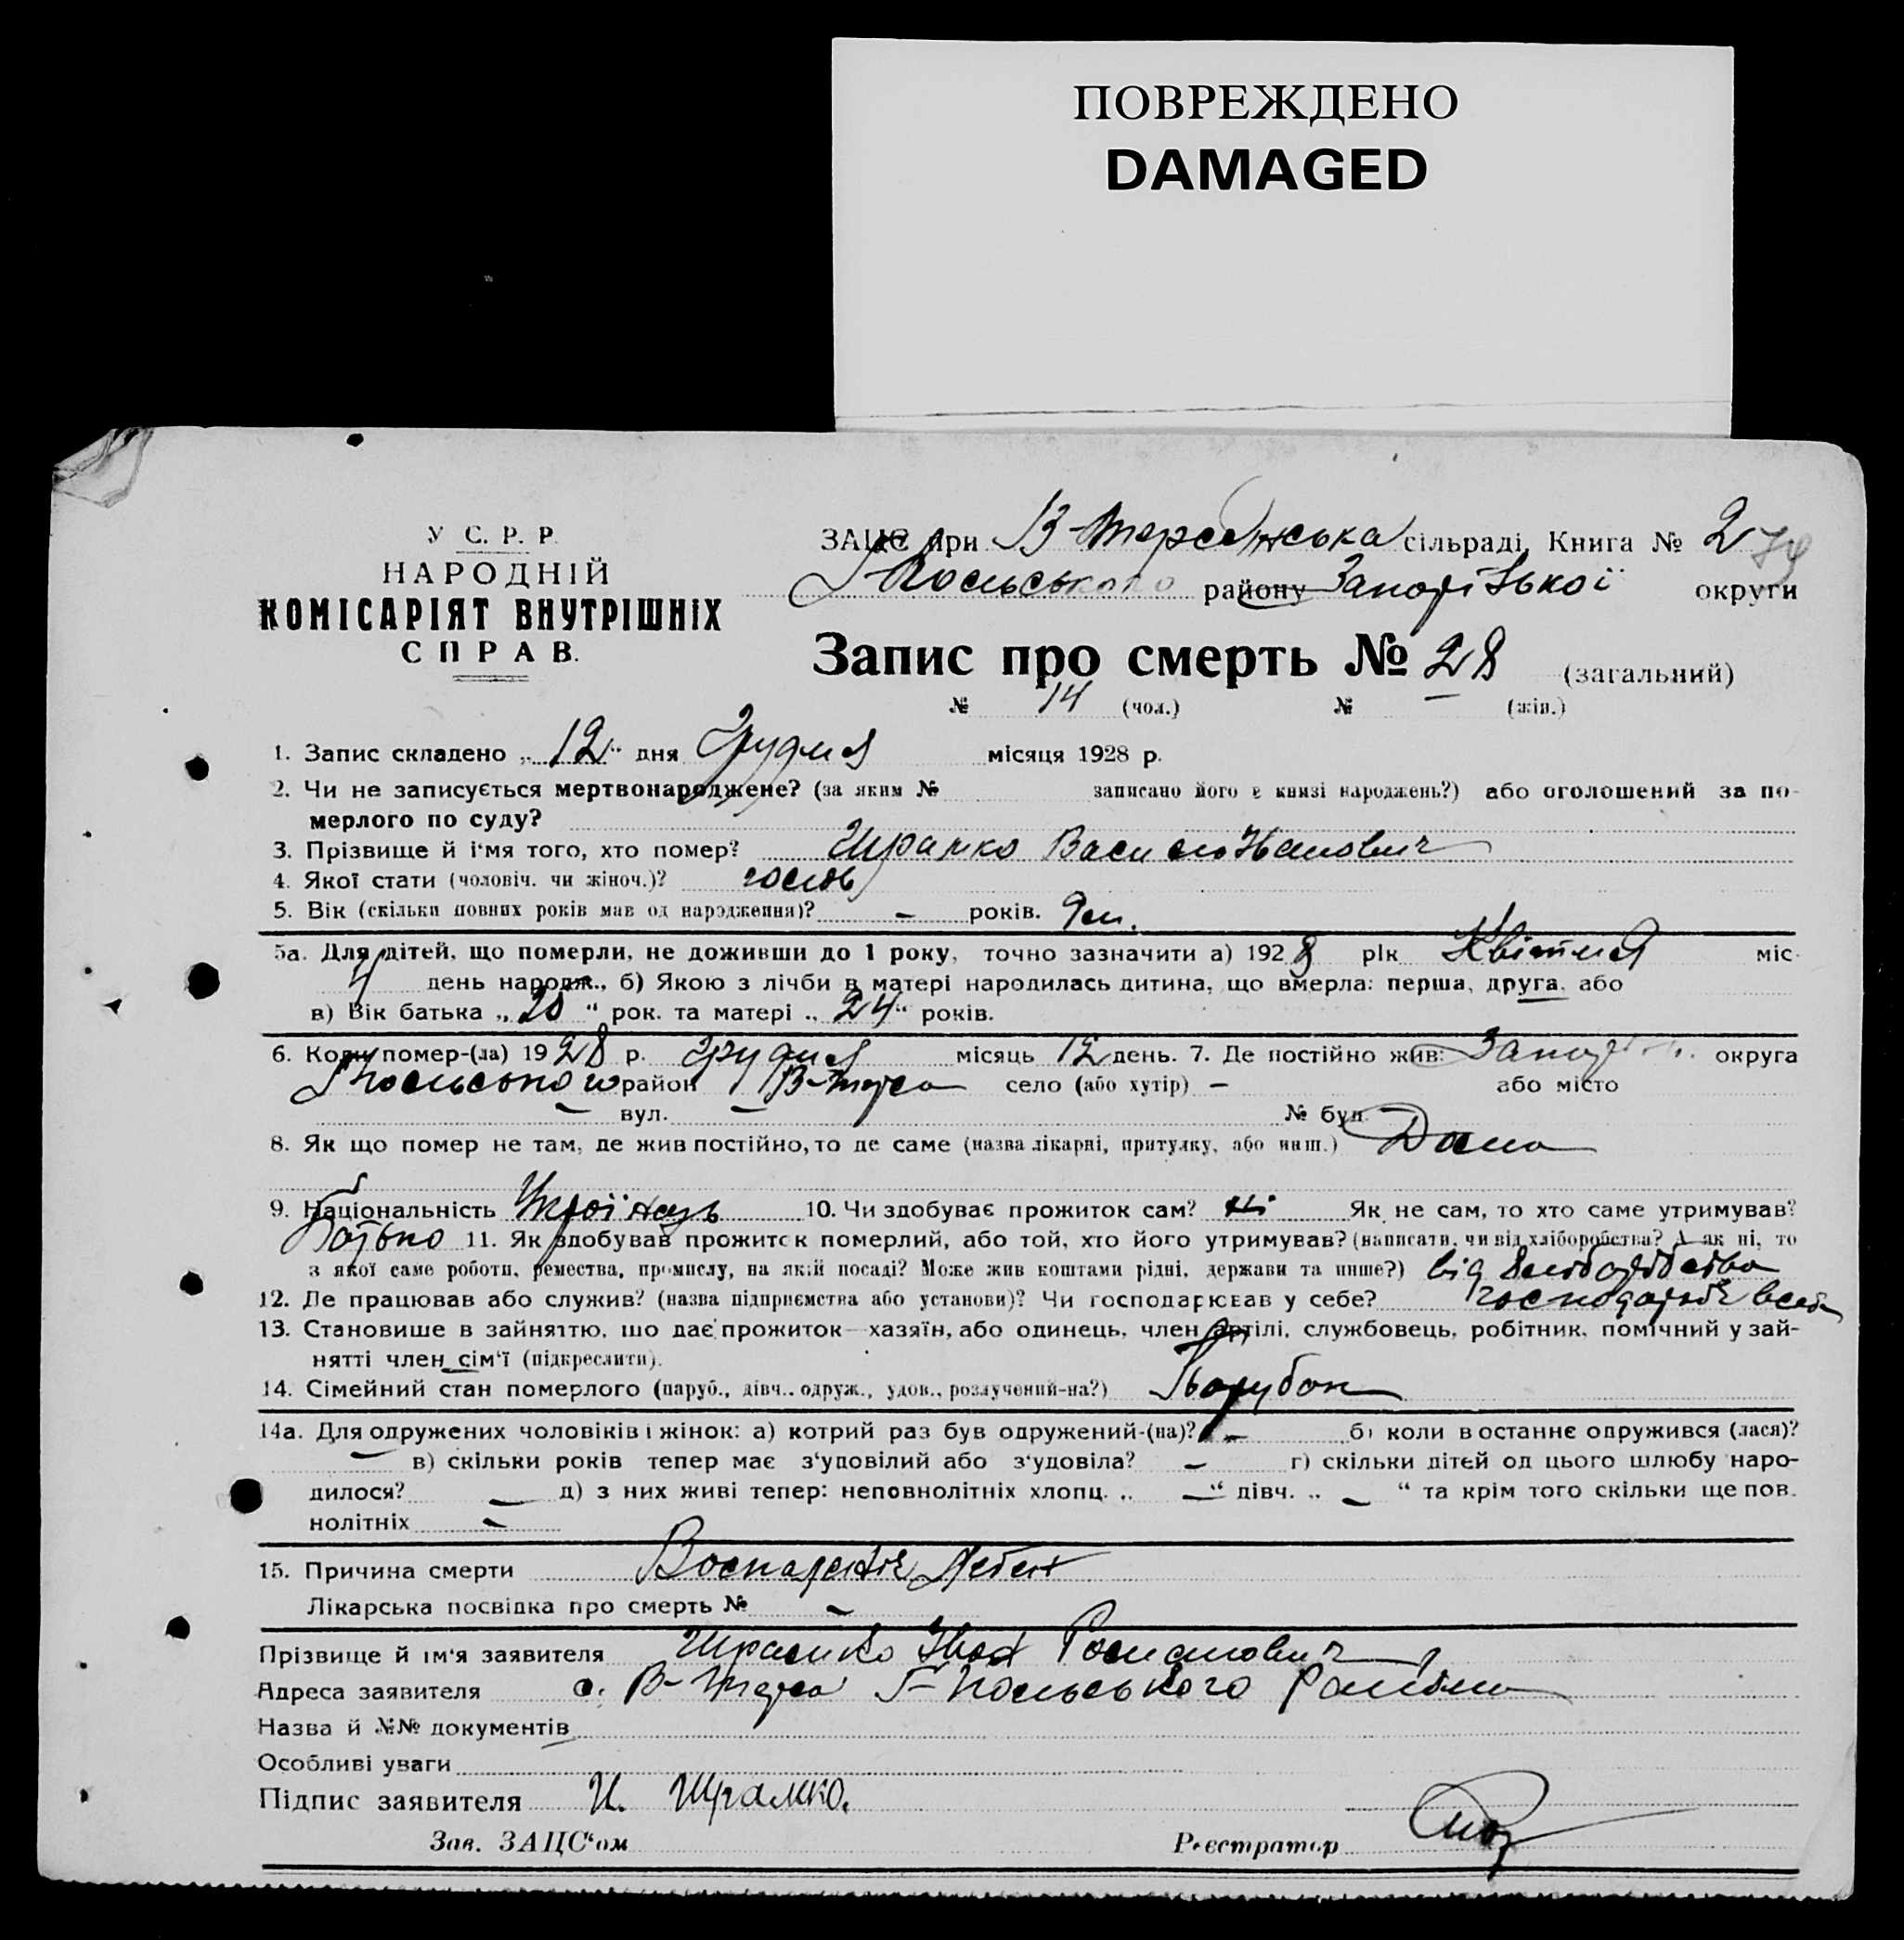 ПОВРЕЖДЕНО
DAMAGED
У С. Р. Р.
НАРОДНІЙ
КОМІСАРІЯТ ВНУТРІШНІХ
СПРАВ.
ЗАЦС при В-Терсянська сільраді, Книга № 2
району Запорізької округи
Запис про смерть № 28 (загальний)
№ 14 (чол.) № – (жін.)
1. Запис складено „12“ дня Грудня місяця 1928 р.
2. Чи не записується мертвонароджене? (за яким № записано його в книзі народжень?) або оголошений за по-
мерлого по суду?
3. Прізвище й ім'я того, хто помер? Шрамко Василь Іванович
4. Якої стати (чоловіч. чи жіноч.)? чолов
5. Вік (скільки повних років мав од народження)? – років. 9 м.
5а. Для дітей, що померли, не доживши до 1 року, точно зазначити а) 1928 рік Квітня міс.
4 день народж., б) Якою з лічби в матері народилась дитина, що вмерла: перша, друга, або
в) Вік батька „28“ рок. та матері „24“ років.
6. Коли помер-(ла) 1928 р. Грудня місяць 12 день. 7. Де постійно жив: округа
район В-Терса село (або хутір) – або місто
– вул. – № буд.
8. Як що помер не там, де жив постійно, то де саме (назва лікарні, притулку, або инш.) Дома
9. Національність Україніець 10. Чи здобуває прожиток сам? ні Як не сам, то хто саме утримував?
батько 11. Як здобував прожиток померлий, або той, хто його утримував? (написати, чи від хліборобства? А як ні, то
з якої саме роботи, ремества, промислу, на якій посаді? Може жив коштами рідні, держави та инше?) від хліборобства
12. Де працював або служив? (назва підприємства або установи)? Чи господарював у себе? господарює в себе
13. Становише в зайняттю, що дає прожиток—хазяїн, або одинець, член артілі, службовець, робітник, помічний у зай-
нятті член сім'ї (підкреслити).
14. Сімейний стан померлого (паруб., дівч., одруж., удов., розлучений-на?) Парубок
14а. Для одружених чоловіків і жінок: а) котрий раз був одружений-(на)? – б) коли в останнє одружився (лася)?
– в) скільки років тепер має з'удовілий або з'удовіла? – г) скільки дітей од цього шлюбу наро-
дилося? – д) з них живі тепер: неповнолітніх хлопц. „–“ дівч. „–“ та крім того скільки ще пов.
нолітніх –
15. Причина смерти Воспаление
Лікарська посвідка про смерть № –
Прізвище й ім'я заявителя Шрамко Іван Романович
Адреса заявителя с. В-Терса Г-Польського району
Назва й №№ документів
Особливі уваги
Підпис заявителя И. Шрамко.
Зав. ЗАЦС'ом Реєстратор